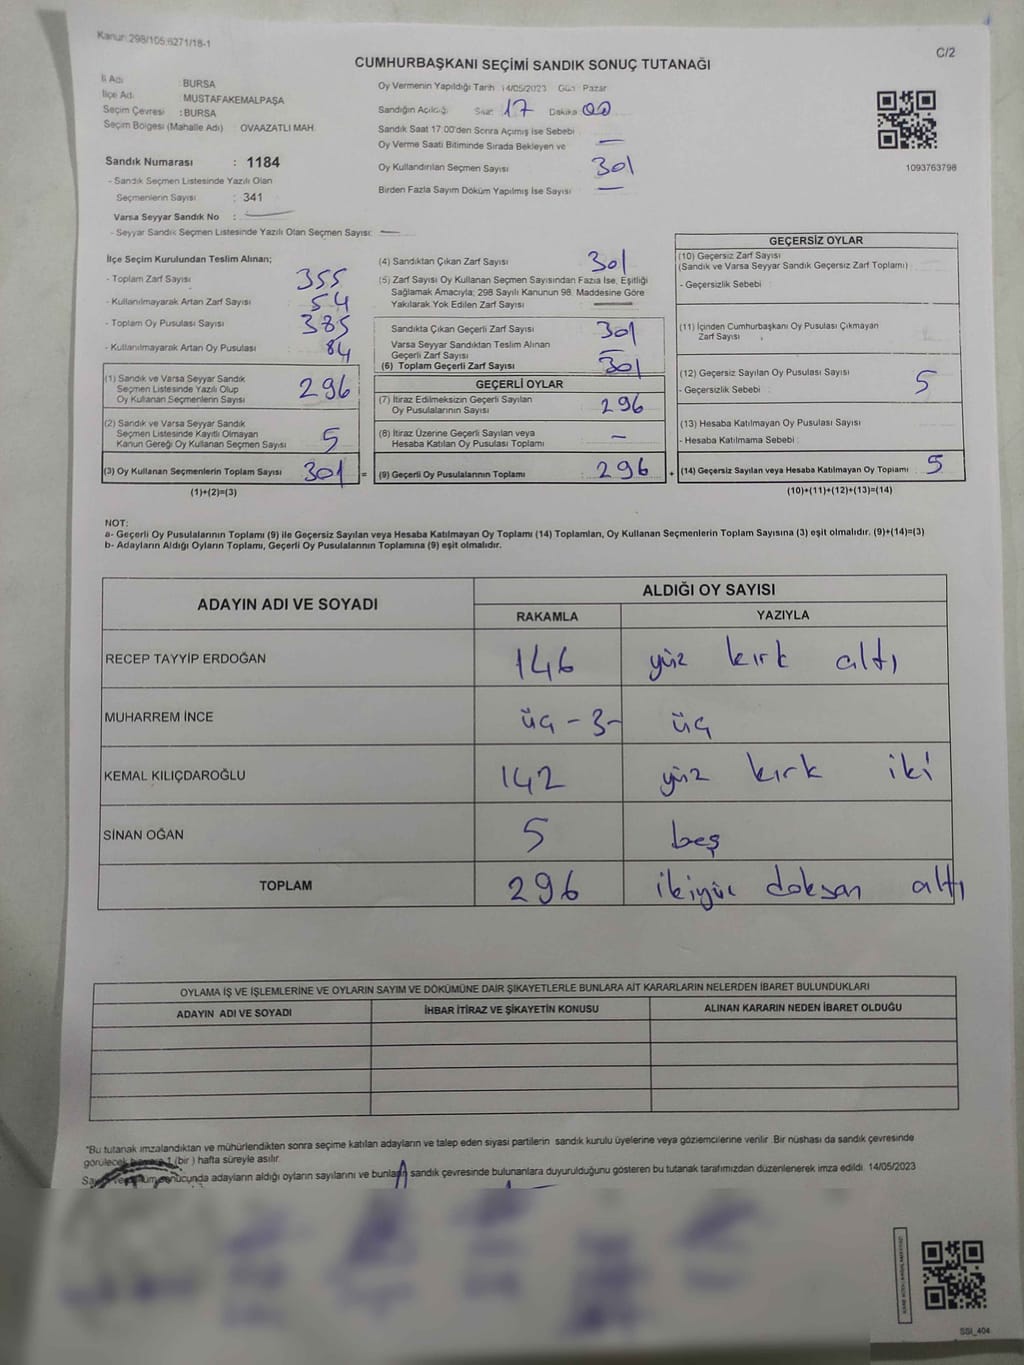 Kanun: 298/105 6271/18-1
C/2
CUMHURBAŞKANI SEÇİMİ SANDIK SONUÇ TUTANAĞI
İl Adı : BURSA
İlçe Adı : MUSTAFAKEMALPAŞA
Seçim Çevresi : BURSA
Seçim Bölgesi (Mahalle Adı) OVAAZATLI MAH.
Oy Vermenin Yapıldığı Tarih 14/05/2023 Gün: Pazar
Sandığın Açıldığı Saat 17 Dakika 00
Sandık Saat 17.00'den Sonra Açılmış İse Sebebi
Oy Verme Saati Bitiminde Sırada Bekleyen ve —
Oy Kullandırılan Seçmen Sayısı 301
Birden Fazla Sayım Döküm Yapılmış İse Sayısı —
1093763798
Sandık Numarası : 1184
- Sandık Seçmen Listesinde Yazılı Olan
Seçmenlerin Sayısı : 341
Varsa Seyyar Sandık No : —
- Seyyar Sandık Seçmen Listesinde Yazılı Olan Seçmen Sayısı: —
İlçe Seçim Kurulundan Teslim Alınan;
- Toplam Zarf Sayısı 355
- Kullanılmayarak Artan Zarf Sayısı 54
- Toplam Oy Pusulası Sayısı 385
- Kullanılmayarak Artan Oy Pusulası 84
(1) Sandık ve Varsa Seyyar Sandık
Seçmen Listesinde Yazılı Olup
Oy Kullanan Seçmenlerin Sayısı 296
(2) Sandık ve Varsa Seyyar Sandık
Seçmen Listesinde Kayıtlı Olmayan
Kanun Gereği Oy Kullanan Seçmen Sayısı 5
(3) Oy Kullanan Seçmenlerin Toplam Sayısı 301 =
(1)+(2)=(3)
(4) Sandıktan Çıkan Zarf Sayısı 301
(5) Zarf Sayısı Oy Kullanan Seçmen Sayısından Fazla İse, Eşitliği
Sağlamak Amacıyla; 298 Sayılı Kanunun 98. Maddesine Göre
Yakılarak Yok Edilen Zarf Sayısı —
Sandıkta Çıkan Geçerli Zarf Sayısı 301
Varsa Seyyar Sandıktan Teslim Alınan
Geçerli Zarf Sayısı —
(6) Toplam Geçerli Zarf Sayısı 301
GEÇERLİ OYLAR
(7) İtiraz Edilmeksizin Geçerli Sayılan
Oy Pusulalarının Sayısı 296
(8) İtiraz Üzerine Geçerli Sayılan veya
Hesaba Katılan Oy Pusulası Toplamı —
(9) Geçerli Oy Pusulalarının Toplamı 296 +
GEÇERSİZ OYLAR
(10) Geçersiz Zarf Sayısı
(Sandık ve Varsa Seyyar Sandık Geçersiz Zarf Toplamı)
- Geçersizlik Sebebi
(11) İçinden Cumhurbaşkanı Oy Pusulası Çıkmayan
Zarf Sayısı
(12) Geçersiz Sayılan Oy Pusulası Sayısı 5
- Geçersizlik Sebebi
(13) Hesaba Katılmayan Oy Pusulası Sayısı
- Hesaba Katılmama Sebebi
(14) Geçersiz Sayılan veya Hesaba Katılmayan Oy Toplamı 5
(10)+(11)+(12)+(13)=(14)
NOT:
a- Geçerli Oy Pusulalarının Toplamı (9) ile Geçersiz Sayılan veya Hesaba Katılmayan Oy Toplamı (14) Toplamları, Oy Kullanan Seçmenlerin Toplam Sayısına (3) eşit olmalıdır. (9)+(14)=(3)
b- Adayların Aldığı Oyların Toplamı, Geçerli Oy Pusulalarının Toplamına (9) eşit olmalıdır.
ADAYIN ADI VE SOYADI
ALDIĞI OY SAYISI
RAKAMLA YAZIYLA
RECEP TAYYİP ERDOĞAN 146 yüz kırk altı
MUHARREM İNCE üç - 3 - üç
KEMAL KILIÇDAROĞLU 142 yüz kırk iki
SİNAN OĞAN 5 beş
TOPLAM 296 ikiyüz doksan altı
OYLAMA İŞ VE İŞLEMLERİNE VE OYLARIN SAYIM VE DÖKÜMÜNE DAİR ŞİKAYETLERLE BUNLARA AİT KARARLARIN NELERDEN İBARET BULUNDUKLARI
ADAYIN ADI VE SOYADI İHBAR İTİRAZ VE ŞİKAYETİN KONUSU ALINAN KARARIN NEDEN İBARET OLDUĞU
"Bu tutanak imzalandıktan ve mühürlendikten sonra seçime katılan adayların ve talep eden siyasi partilerin sandık kurulu üyelerine veya gözlemcilerine verilir. Bir nüshası da sandık çevresinde
görülecek 1 (bir) hafta süreyle asılır.
adayların aldığı oyların sayılarını ve bunların sandık çevresinde bulunanlara duyurulduğunu gösteren bu tutanak tarafımızdan düzenlenerek imza edildi. 14/05/2023
SSI_404